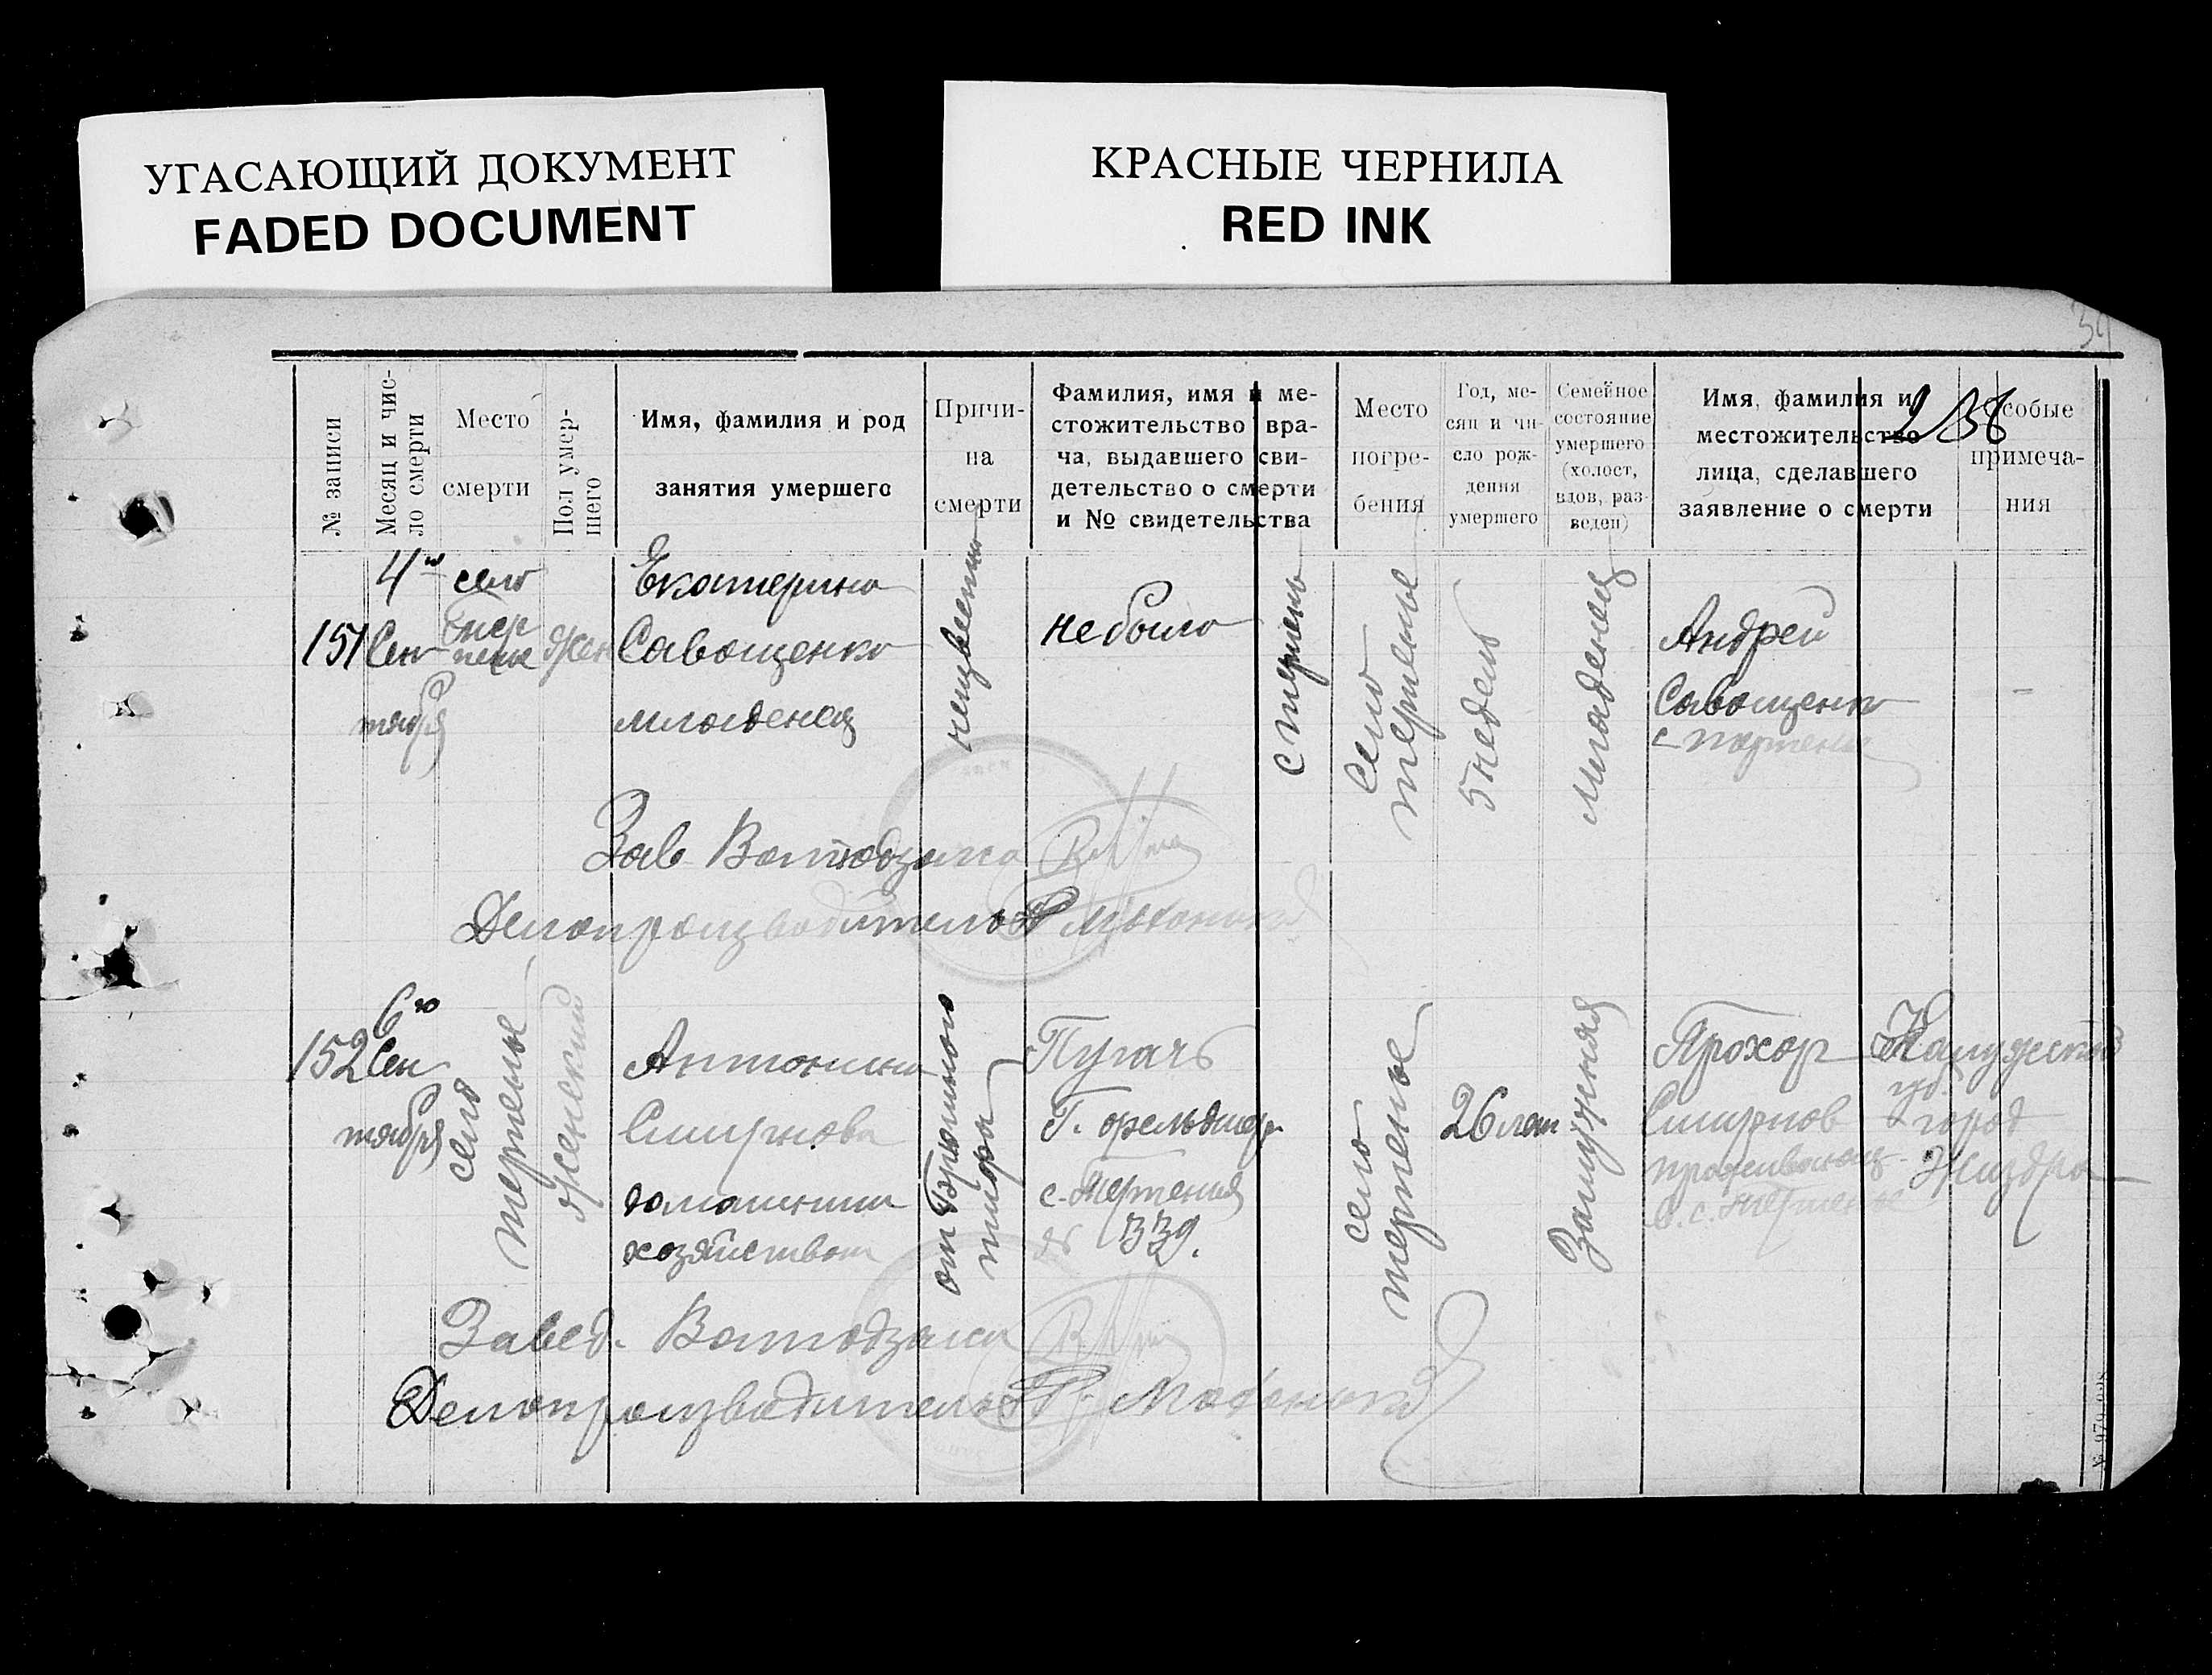 УГАСАЮЩИЙ ДОКУМЕНТ
FADED DOCUMENT
КРАСНЫЕ ЧЕРНИЛА
RED INK
№ записи
Месяц и чис-
ло смерти
Место
смерти
Пол умер-
шего
Имя, фамилия и род
занятия умершего
Причи-
на
смерти
Фамилия, имя и ме-
стожительство вра-
ча, выдавшего сви-
детельство о смерти
и № свидетельства
Место
погре-
бения
Год, ме-
сяц и чи-
сло рож-
дения
умершего
Семейное
состояние
умершего
(холост,
вдов, раз-
веден)
Имя, фамилия и
местожительство
лица, сделавшего
заявление о смерти
Особые
примеча-
ния
151
4го
Сен
тября
село
жен
Екатерина
Савощенко
младенец
неизвестно
не было
село
терпенье
5 недель
младенец
Андрей
Савощенко
Зав
Делопроизводитель
152
6го
Сен
тября
село
терпенье
женский
Антонина
Смирнова
домашним
хозяйством
от Брюшного
тифа
Пугачь
Г. фельдшер
с. Терпения
339.
село
терпенье
26 лет
Замужняя
Прохор
Смирнов
проживающ
в с. терпенье
Калужской
губ
город
Жиздра
Завед.
Делопроизводитель